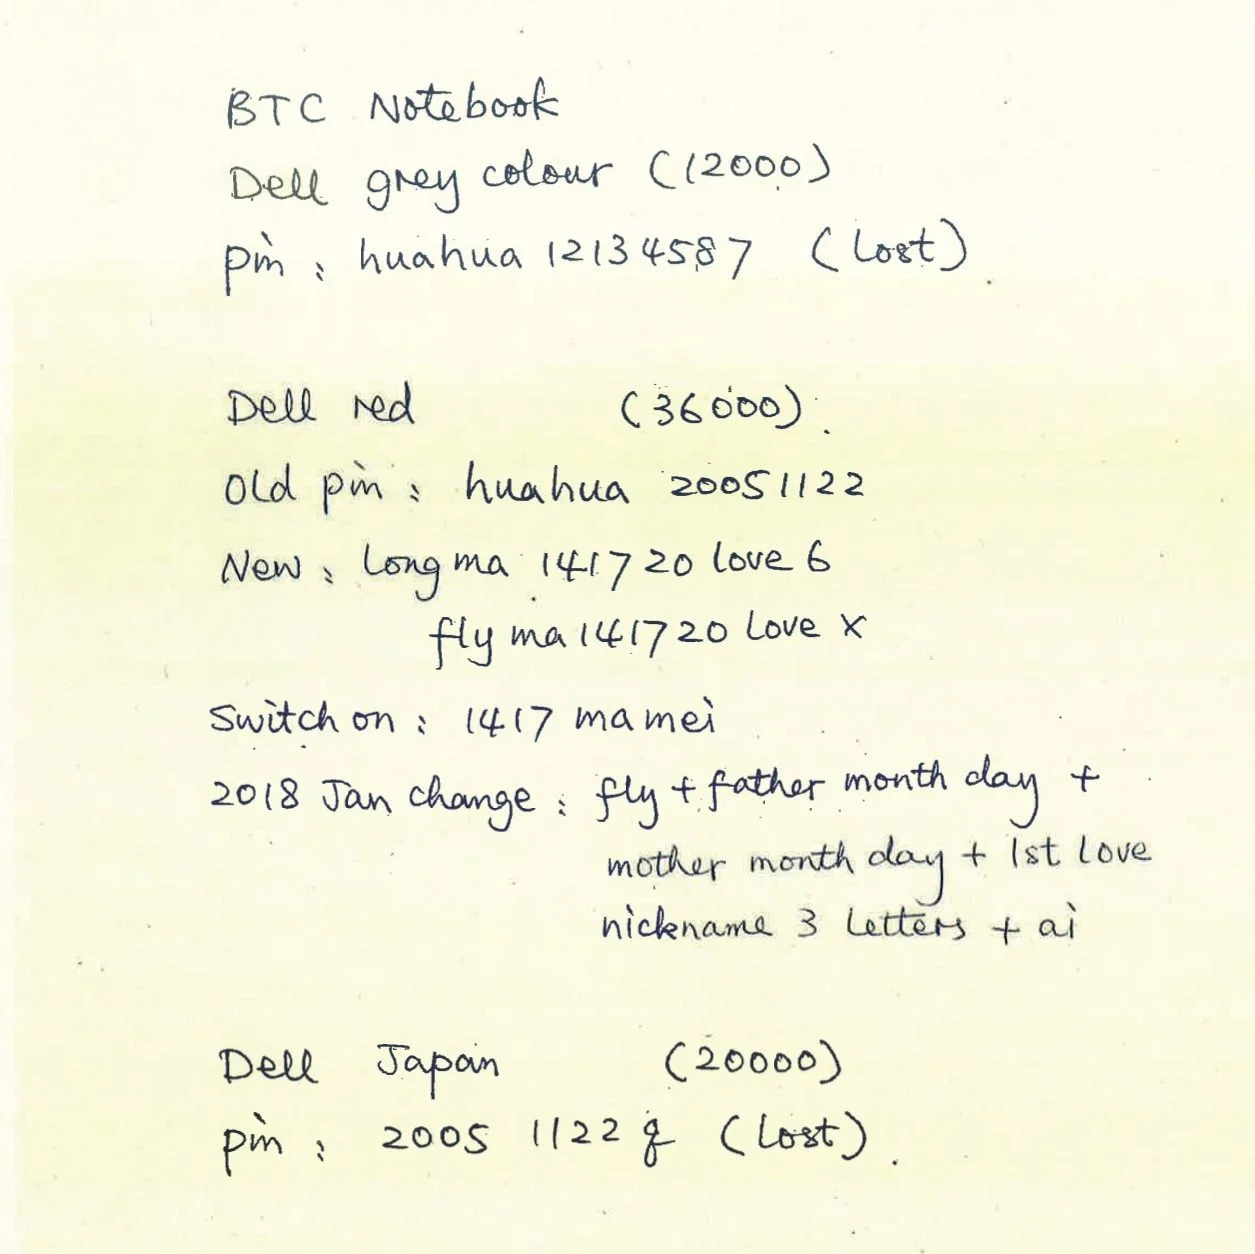 BTC Notebook
Dell grey colour (12000)
pin : huahua 12134587 (lost)
Dell red (36000)
Old pin : huahua 20051122
New : Longma 141720 love 6
fly ma 141720 Love x
Switch on : 1417 mamei
2018 Jan change : fly + father month day +
mother month day + 1st love
nickname 3 letters + ai
Dell Japan (20000)
pin : 2005 1122 g (lost)